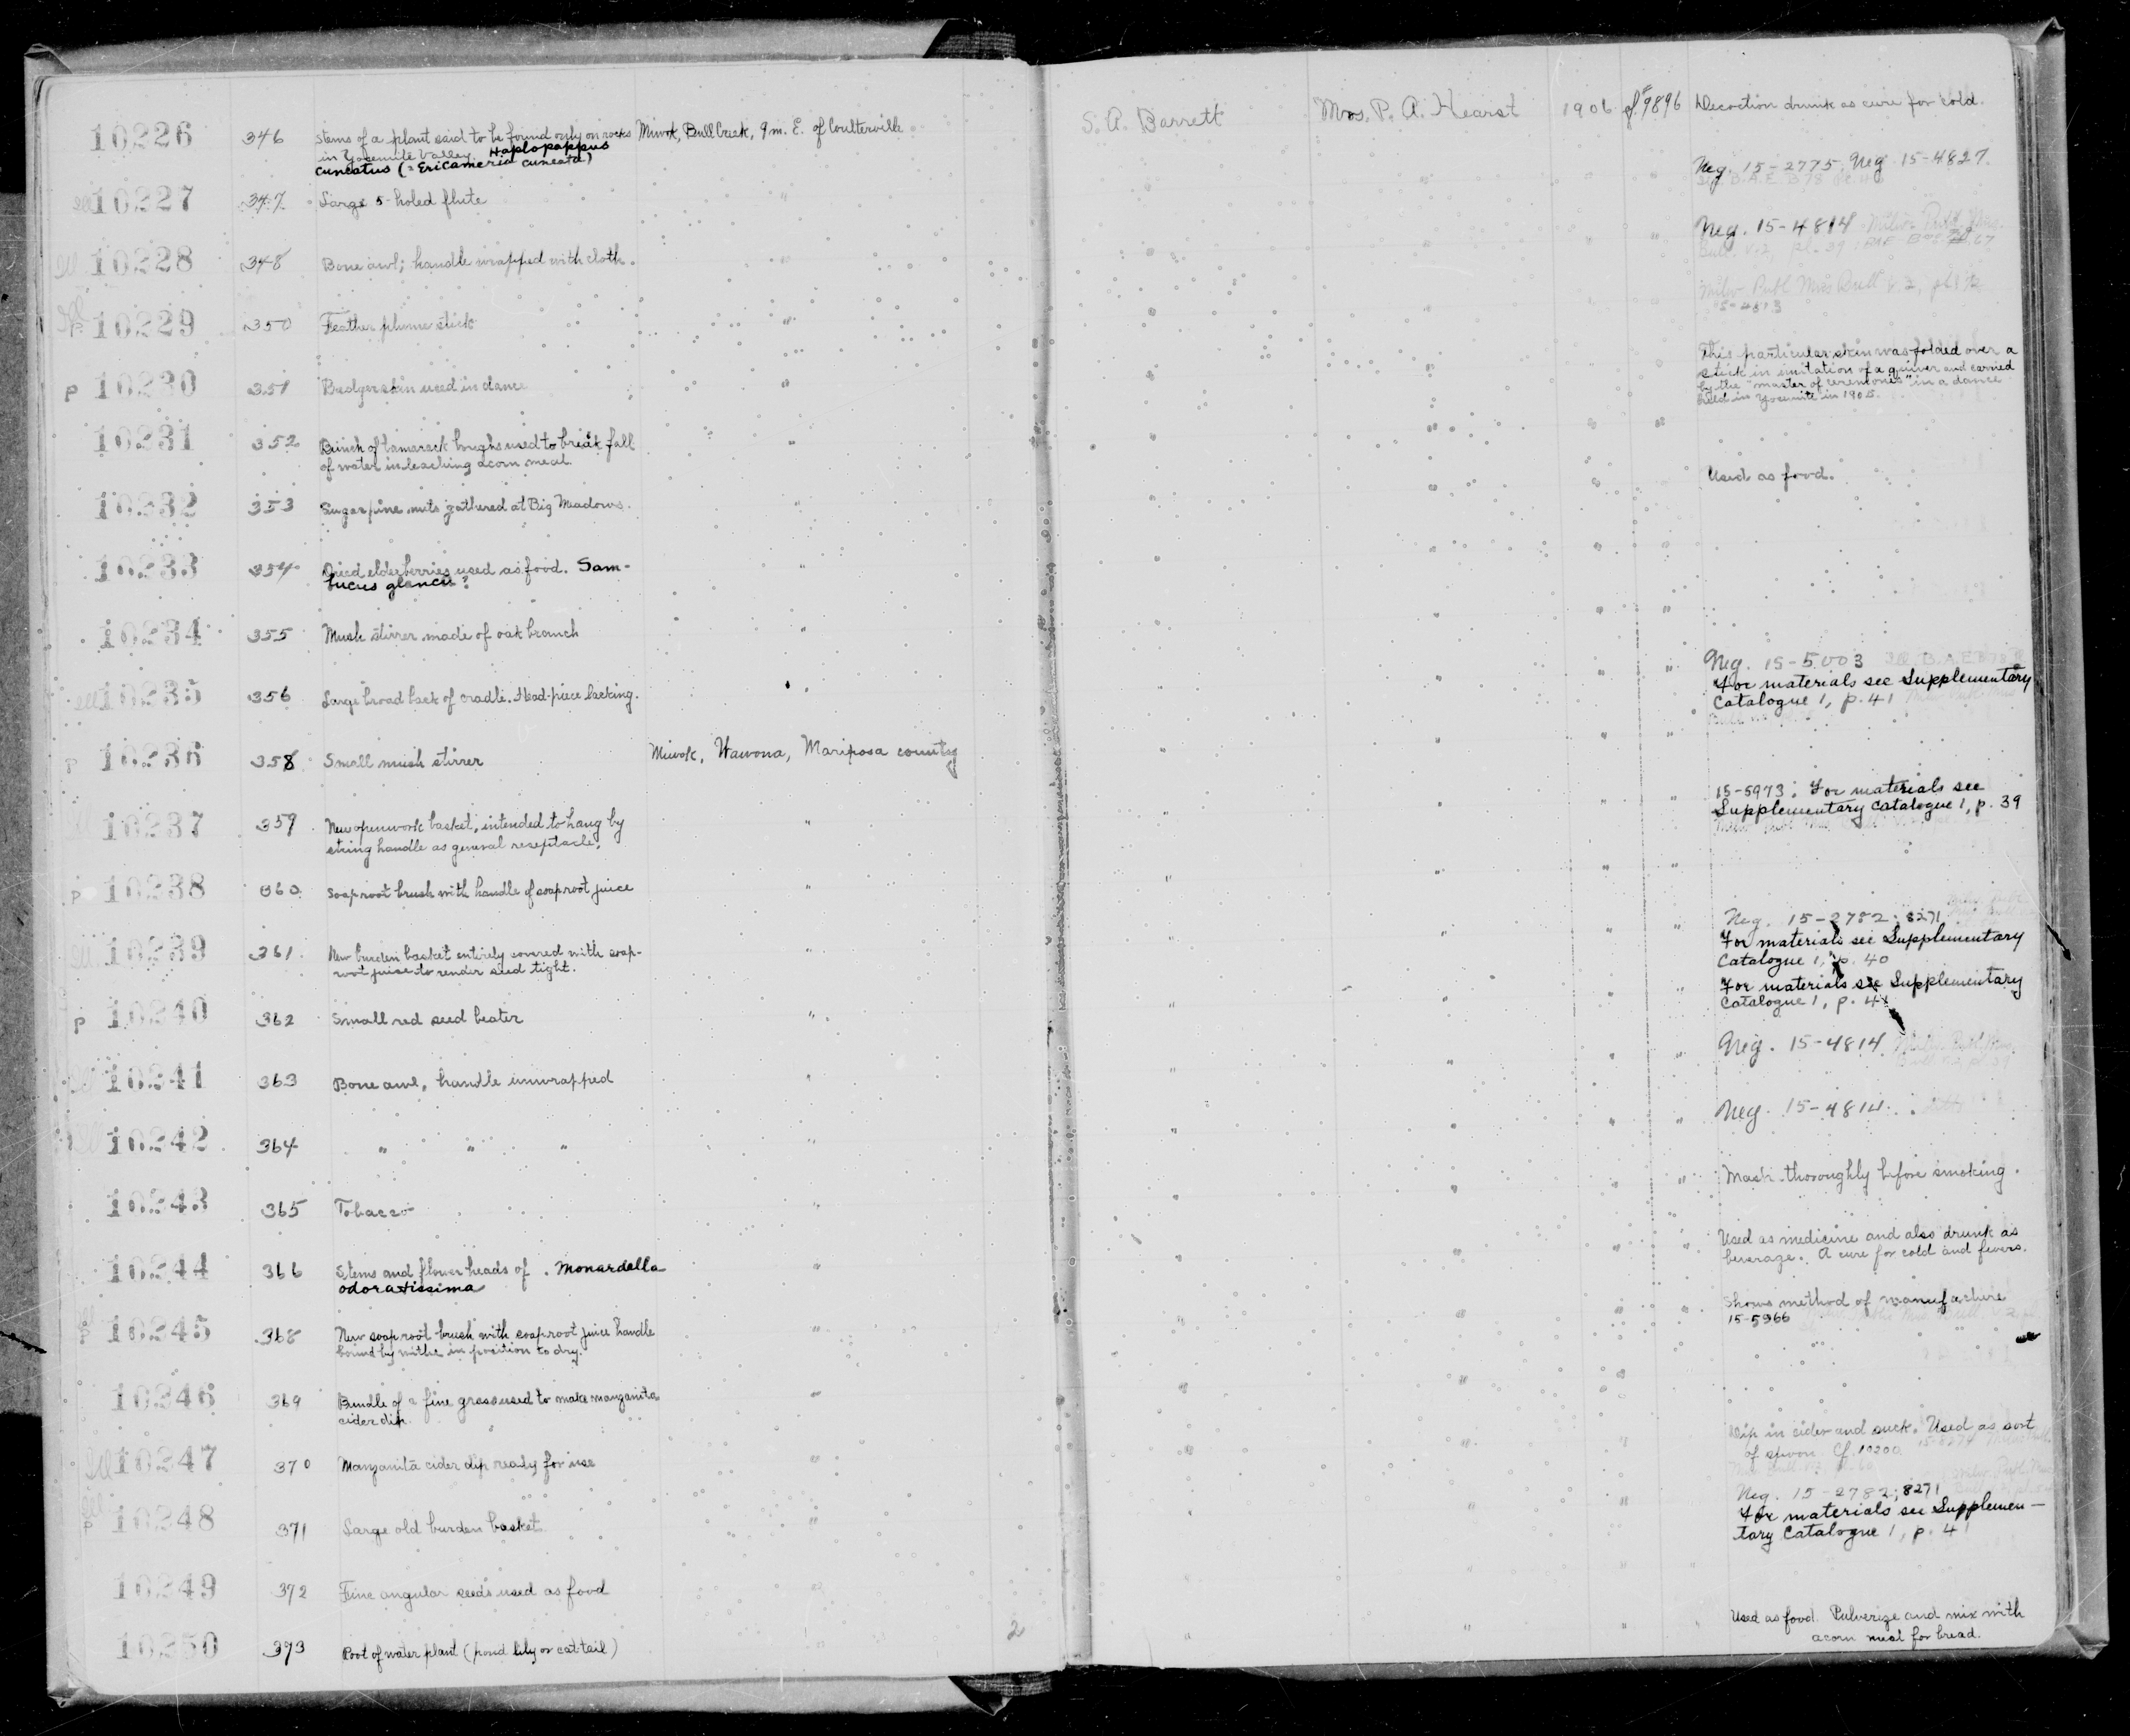 10226 346 Stems of a plant said to be found only on rocks Miwok, Bull Creek, 9 m. E. of Coulterville S. A. Barrett Mrs. P. A. Hearst 1906 cf. 9896 Decoction drunk as cure for cold.
in Yosemite Valley. Haplopappus
cuneatus (= Ericameria cuneata)
10227 347 Large 5-holed flute " Neg. 15-2775; Neg. 15-4827.
10228 348 Bone awl; handle wrapped with cloth. " Neg. 15-4814
10229 350 Feather plume stick " Milw. Publ Mus Bull v. 2, pl
15-4813
10230 351 Badger skin used in dance " This particular skin was folded over a
stick in imitation of a quiver and carried
by the "master of ceremonies" in a dance
held in Yosemite in 1905.
10231 352 Bunch of tamarack boughs used to break fall "
of water in leaching acorn meal.
10232 353 Sugar pine nuts gathered at Big Meadows. " Used as food.
10233 354 Dried elderberries used as food. Sam- "
bucus glauca?
10234 355 Mush stirrer made of oak branch "
10235 356 Large broad back of cradle. Head-piece lacking. " Neg. 15-5003
For materials see Supplementary
Catalogue 1, p. 41
p 10236 358 Small mush stirrer Miwok, Wawona, Mariposa county
10237 359 New openwork basket, intended to hang by " 15-5973; For materials see
string handle as general receptacle. Supplementary Catalogue 1, p. 39
p 10238 360 Soaproot brush with handle of soaproot juice "
10239 361 New burden basket entirely covered with soap- " Neg. 15-2782; 8271
root juice to render seed tight. For materials see Supplementary
Catalogue 1, p. 40
p 10240 362 Small red seed beater " For materials see Supplementary
Catalogue 1, p. 41
10241 363 Bone awl, handle unwrapped " Neg. 15-4814
10242 364 " " " " Neg. 15-4814.
10243 365 Tobacco " Mash thoroughly before smoking.
10244 366 Stems and flower heads of . Monardella " Used as medicine and also drunk as
odoratissima beverage. A cure for cold and fevers.
p 10245 368 New soaproot brush with soaproot juice handle " Shows method of manufacture
bound by withe in position to dry. 15-5966
10246 369 Bundle of a fine grass used to make manzanita "
cider dip.
10247 370 Manzanita cider dip ready for use " Dip in cider and suck. Used as sort
of spoon. Cf. 10200.
p 10248 371 Large old burden basket " Neg. 15-2782; 8271
For materials see Supplemen-
tary Catalogue 1, p. 41
10249 372 Fine angular seeds used as food "
10250 373 Root of water plant (pond lily or cat-tail) " 2 Used as food. Pulverize and mix with
acorn meal for bread.